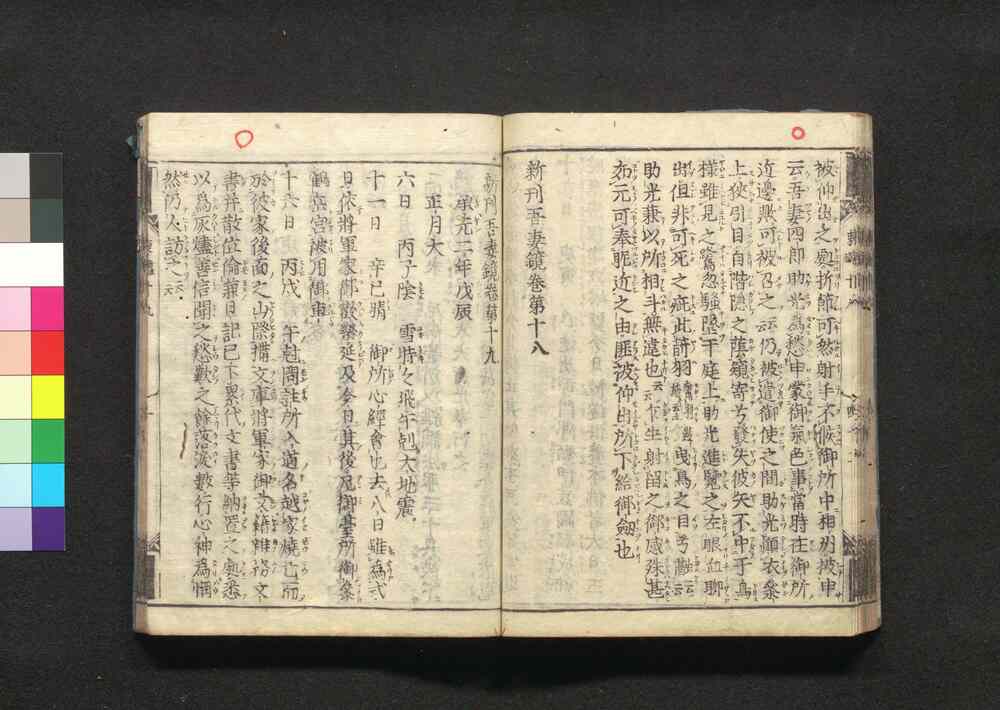 被仰出之処折節可然射手不候御所中相州被申
云吾妻四郎助光為愁申蒙御氣色事當時在御所
近邊歟可被召之云云仍被遣御使之間助光顛衣參
上挾引目自階隱之蔭窺寄兮發矢彼矢不中于鳥
樣雖見之鷺忽騷墜于庭上助光進覽之左眼血聊
出但非可死之疵此箭羽
助光兼以所相斗無違也云云今生射留之御感殊甚
如元可奉昵近之由匪被仰出所下給御劔也
新刊吾妻鏡卷第十八
新刊吾妻鏡卷第十九
承元二年戊辰
正月大
六日 丙子陰 雪時々飛午剋大地震
十一日 辛巳晴 御所心經會也去八日雖為式
日依將軍家御歡樂延及今日其後尼御臺所御參
鶴岳宮被用御車
十六日 丙戌 午剋問註所入道名越家燒亡而
於彼家後面之山際搆文庫將軍家御文籍雜務文
書并散位倫兼日記已下累代文書等納置之処悉
以為灰燼善信聞之愁歎之餘落淚數行心神為惘
然仍人訪之云云